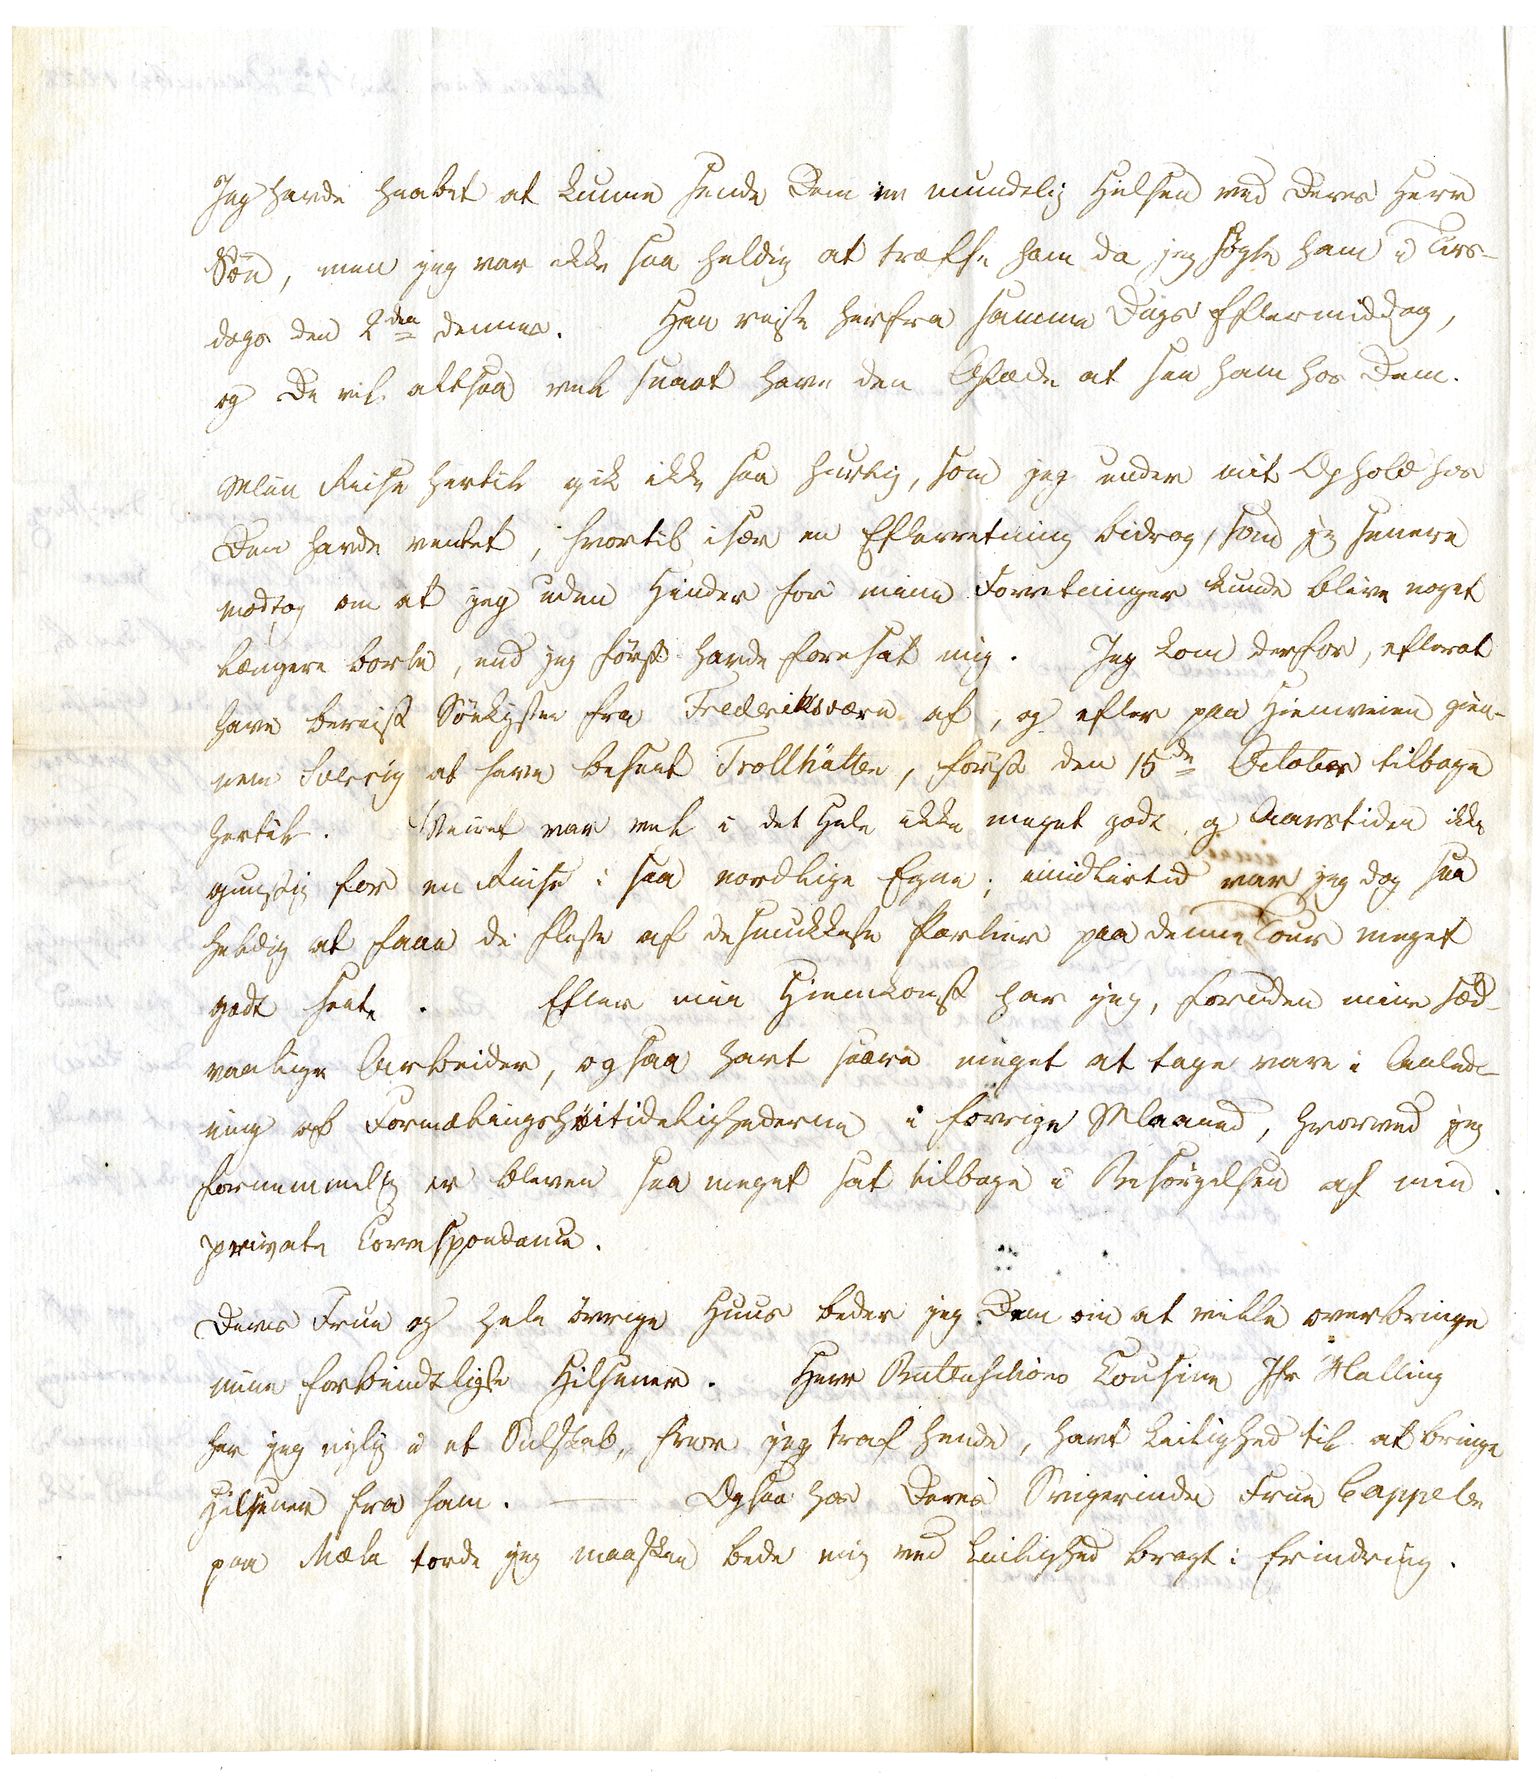 Jeg havde haabet at kunne sende Dem en mundelig Hilsen ved Deres Herr
Sön, men jeg var ikke saa heldig at træffe ham da jeg søgte ham i Tirs-
dags den 2den dennes. Han reiste herfra samme Dags Eftermiddag,
og De vil altsaa vel snart have den Glæde at see ham hos Dem.
Min Reise hertil gik ikke saa hurtig, som jeg under mit Ophold hos
Dem havde ventet, hvortil især en Efterretning bidrog, som jeg senere
modtog om at jeg uden Hinder for mine Forretninger kunde blive noget
længere borte, end jeg först havde foresat mig. Jeg kom derfor, efterat
have bereist Söekysten fra Frederiksværn af, og efter paa Hiemveien gien-
nem Sverrig at have beseet Trollhätten, först den 15de October tilbage
hertil. Veiret var vel i det Hele ikke meget godt og Aarstiden ikke
gunstig for en Reise i saa nordlige Egne; imidlertid var jeg dog saa
heldig at faae de fleste af de smukkeste Partier paa denne Tour meget
godt seete. Efter min Hiemkomst har jeg, foruden mine sæd-
vanlige Arbeider, ogsaa havt sære meget at tage vare i Anled-
ning af Formælingshöitidelighederne i forrige Maaned, hvorved jeg
fornemmelig er bleven saa meget sat tilbage i Besörgelsen af min
private Correspondance.
Deres Frue og hele övrige Huus beder jeg Dem om at ville overbringe
mine forbindtligste Hilsener. Herr Buttenschöns Cousine Jfr Malling
har jeg nylig i et Selskab, hvor jeg traf hende, havt Leilighed til at bringe
Hilsener fra ham. — Ogsaa hos Deres Svigerinde Frue Cappelen
paa Mæla torde jeg maaskee bede mig ved Leilighed bragt i Erindring.